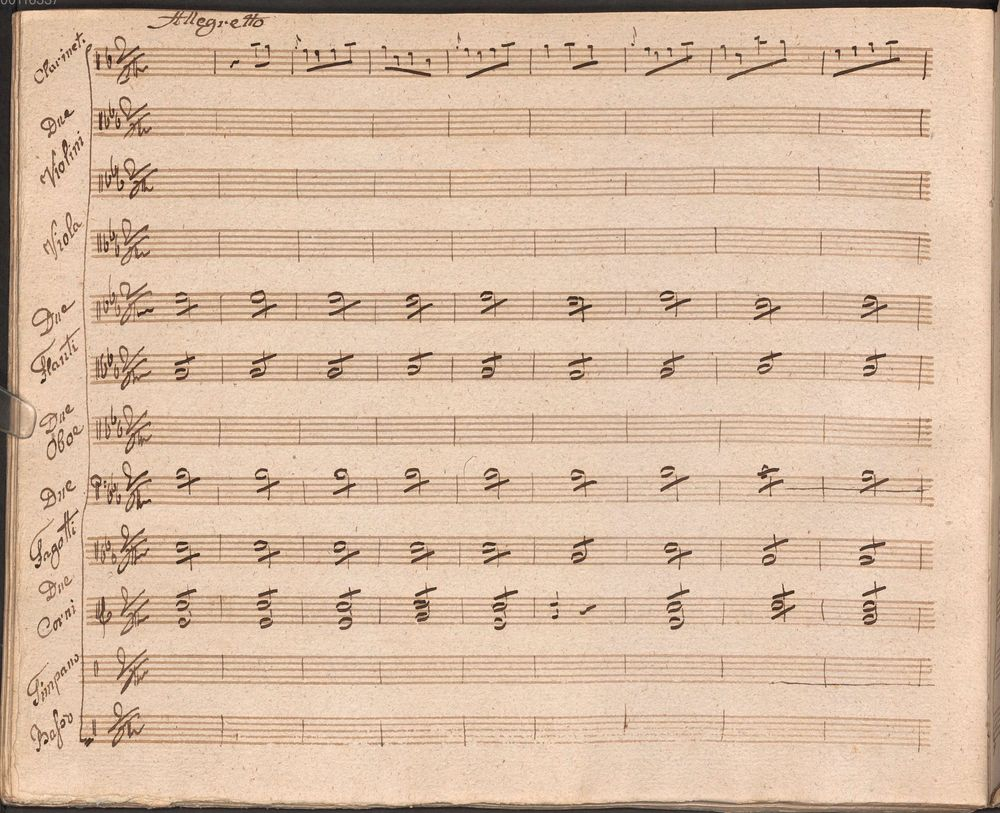 Allegretto
Clarinet.
Due
Violini
Viola
Due
Flauti
Due
Oboe
Due
Fagotti
Due
Corni
Timpano
Basso